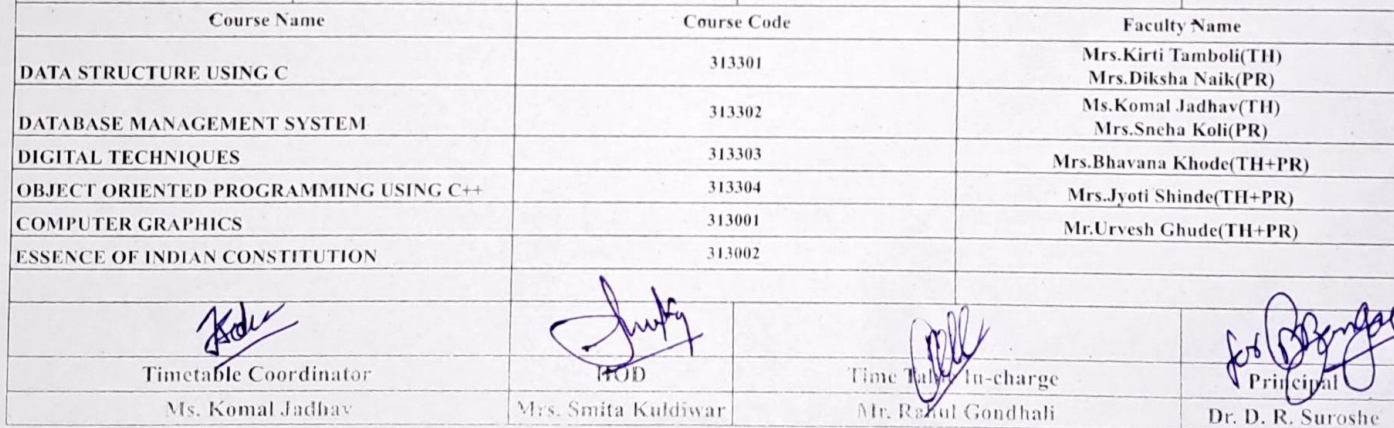 Course Name Course Code Faculty Name
DATA STRUCTURE USING C 313301 Mrs.Kirti Tamboli(TH)
Mrs.Diksha Naik(PR)
DATABASE MANAGEMENT SYSTEM 313302 Ms.Komal Jadhav(TH)
Mrs.Sneha Koli(PR)
DIGITAL TECHNIQUES 313303 Mrs.Bhavana Khode(TH+PR)
OBJECT ORIENTED PROGRAMMING USING C++ 313304 Mrs.Jyoti Shinde(TH+PR)
COMPUTER GRAPHICS 313001 Mr.Urvesh Ghude(TH+PR)
ESSENCE OF INDIAN CONSTITUTION 313002
for
Timetable Coordinator HOD Time Table In-charge Principal
Ms. Komal Jadhav Mrs. Smita Kuldiwar Mr. Rahul Gondhali Dr. D. R. Suroshe